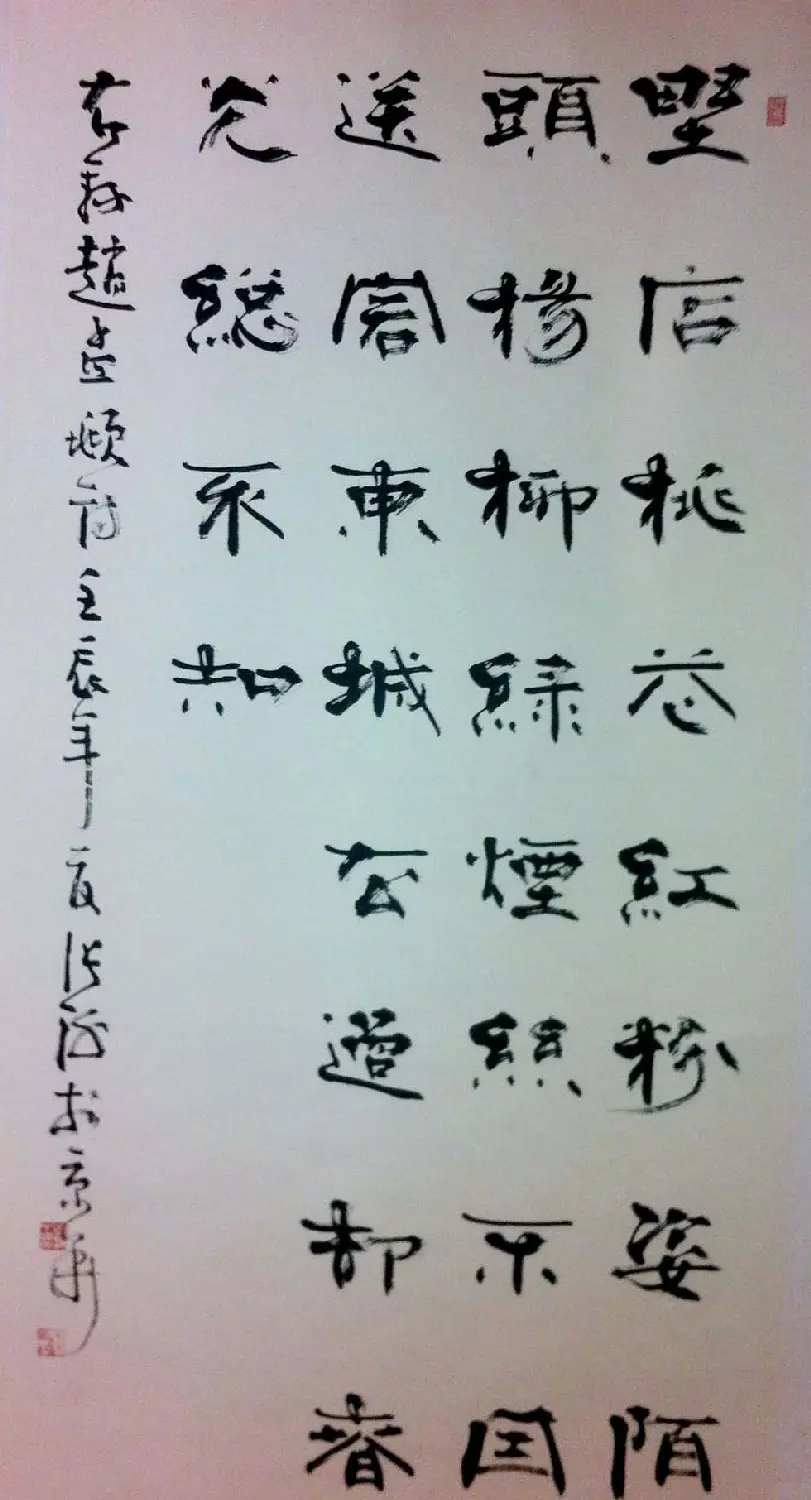 野店桃花紅粉姿陌
頭楊柳緑煙絲不因
送客東城去過却春
光総不知
右録趙孟頫詩壬辰年夏於京華